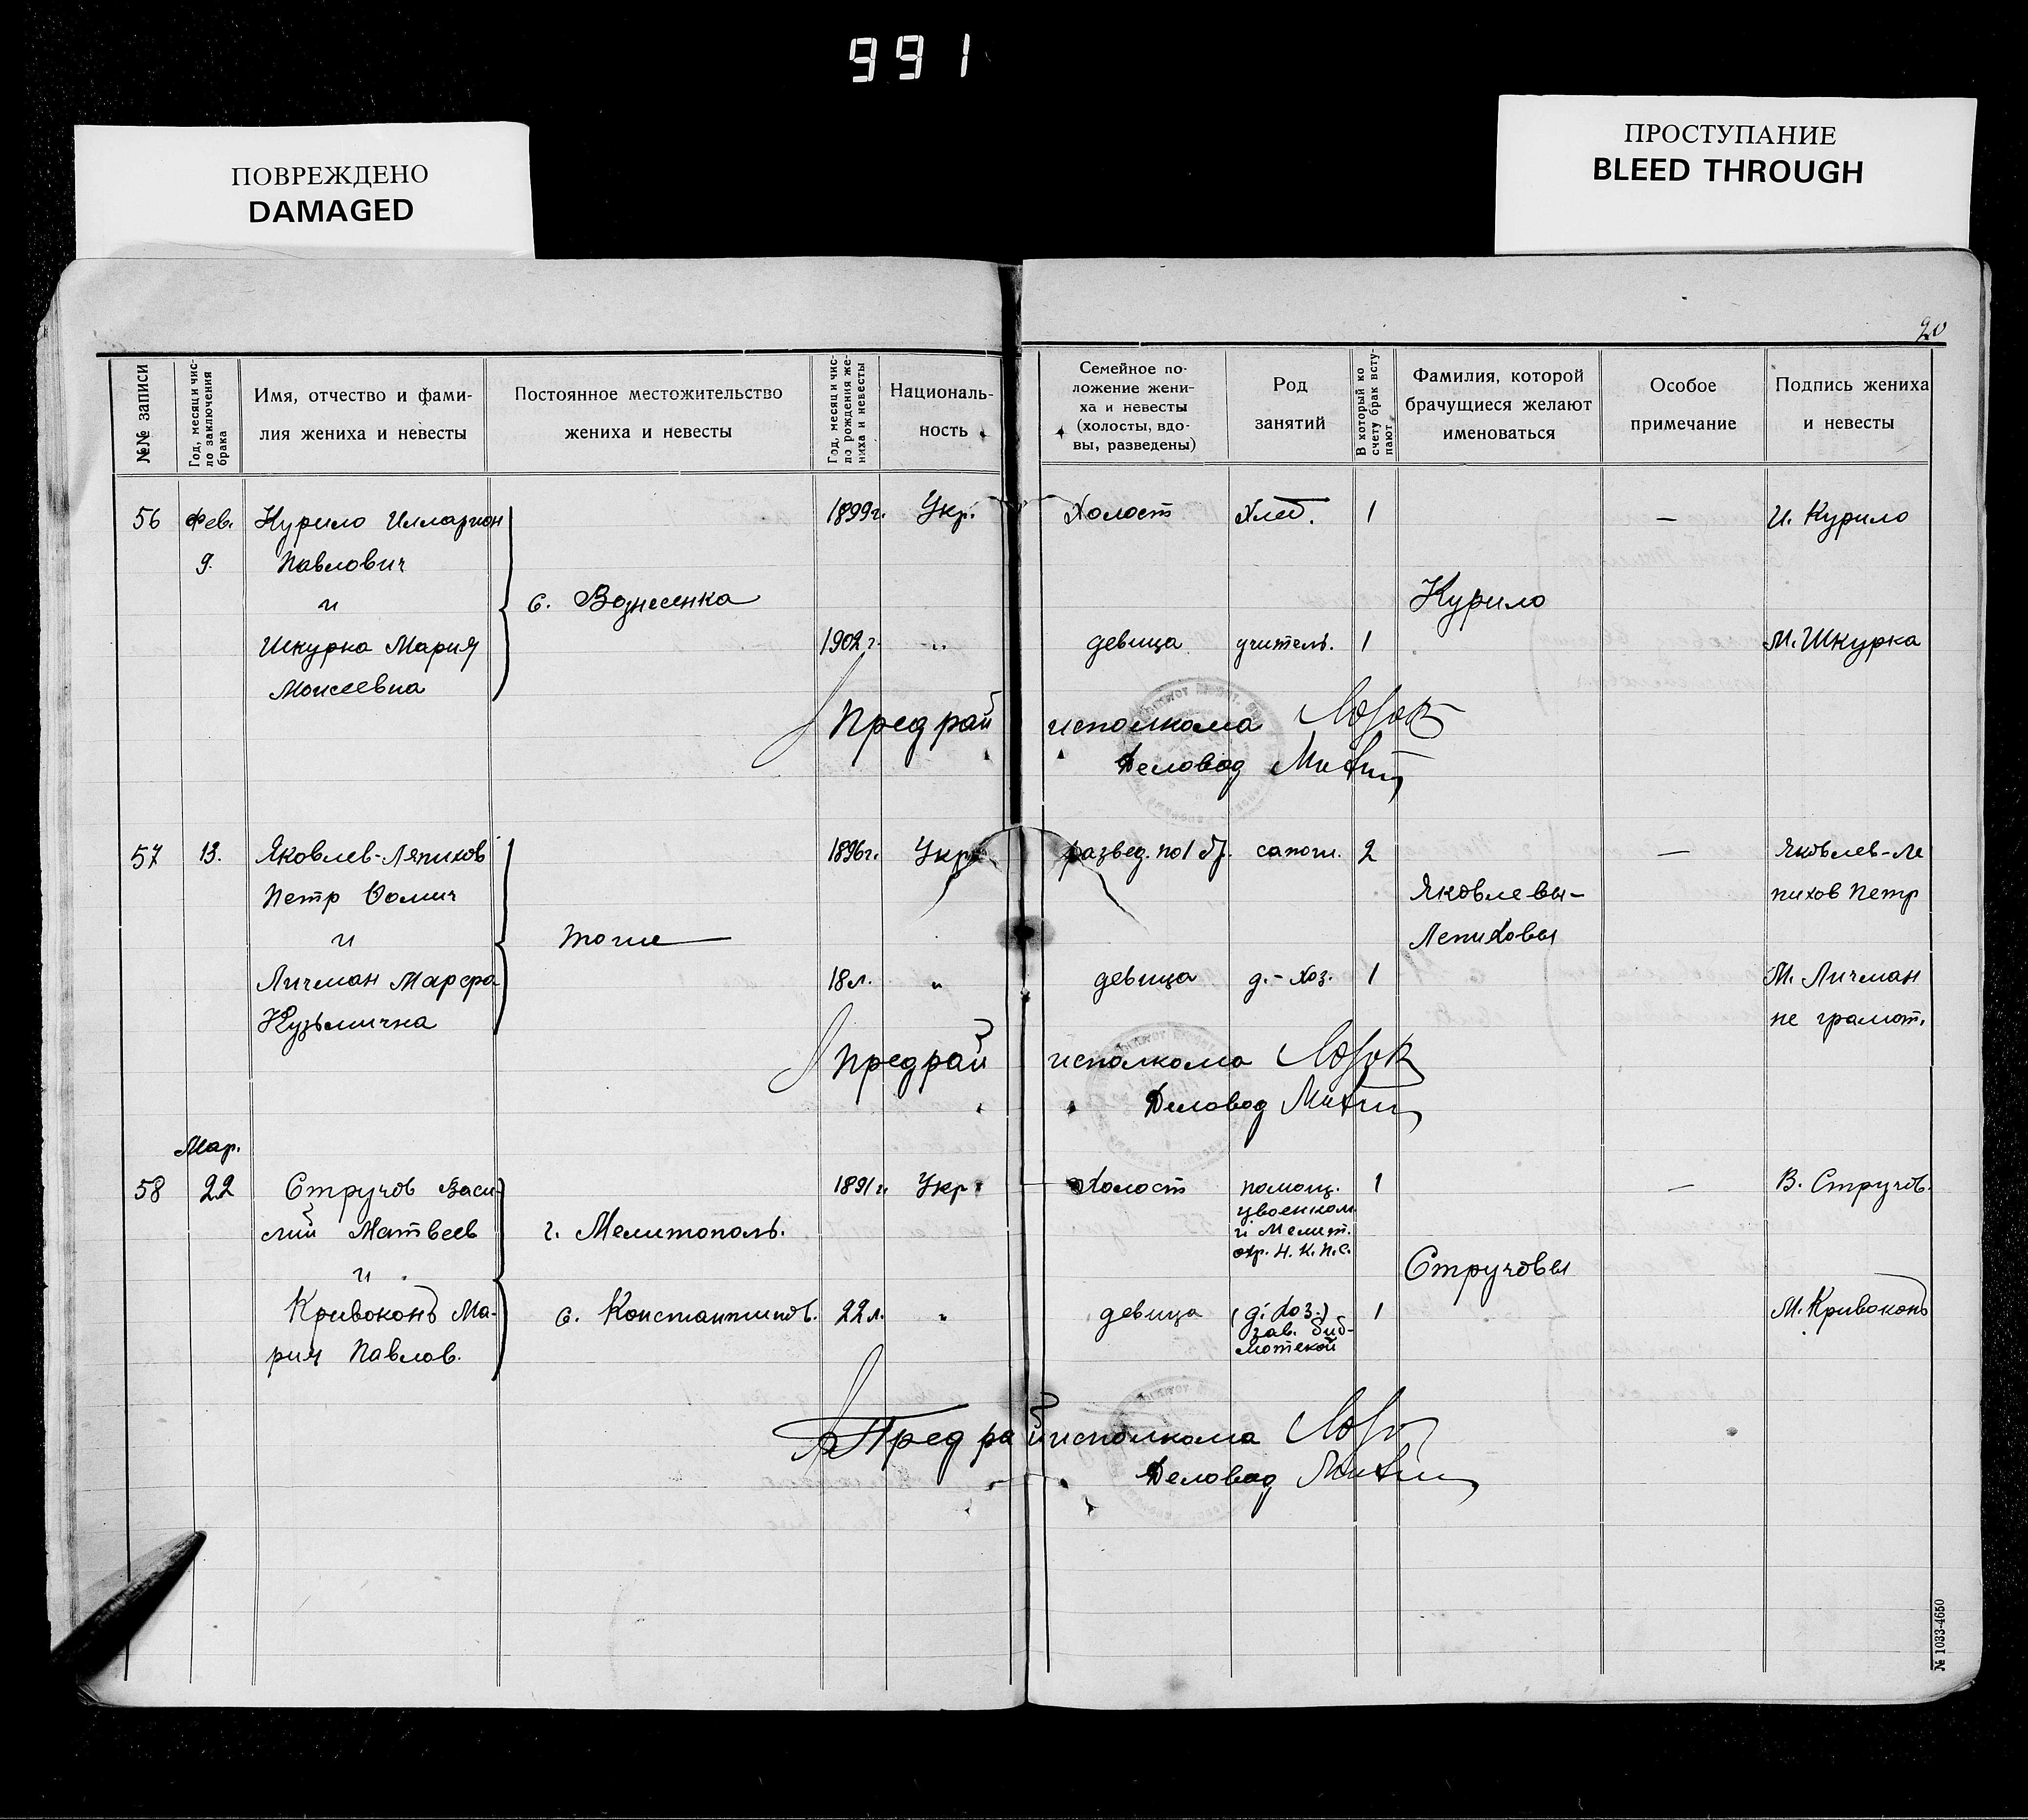 991
ПОВРЕЖДЕНО
DAMAGED
ПРОСТУПАНИЕ
BLEED THROUGH
20
№№ записи
Год, месяц и чис-
ло заключения
брака
Имя, отчество и фами-
лия жениха и невесты
Постоянное местожительство
жениха и невесты
Год, месяц и чис-
ло рождения же-
ниха и невесты
Националь-
ность
Семейное по-
ложение жени-
ха и невесты
(холосты, вдо-
вы, разведены)
Род
занятий
В который ко
счету брак всту-
пают
Фамилия, которой
брачущиеся желают
именоваться
Особое
примечание
Подпись жениха
и невесты
56 Фев. Курило Илларион 1899г. Укр. Холост Хлеб. 1 — И. Курило
9. Павлович
и с. Вознесенка Курило
Шкурка Мария 1902г. " девица учитель. 1 М. Шкурка
Моисеевна
Пред рай исполкома
Деловод
57 13. Яковлев-Ляпихов 1896г. Укр. развед. по 1 бр. сапожн. 2 — Яковлев-Ле
Петр Фомич Яковлевы- пихов Петр
и тоже Лепиховы
Личман Марфа 18 л. " девица д.-хоз. 1 М. Личман
Кузьминична не грамот.
Предрай исполкома
Деловод
Мар.
58 22 Стручов Васи- 1891г. Укр. Холост помощ. 1 — В. Стручов.
увоенком
лий Матвеев г. Мелитополь. г. Мелит.
окр. Н.К.П.С.
и Стручовы
Кривоконь Ма- с. Константинов. 22 л. " девица (д. хоз.) 1 М. Кривоконь
зав. биб-
лиотекой
рия Павлов.
Пред райисполкома
Деловод
№ 1033-4650